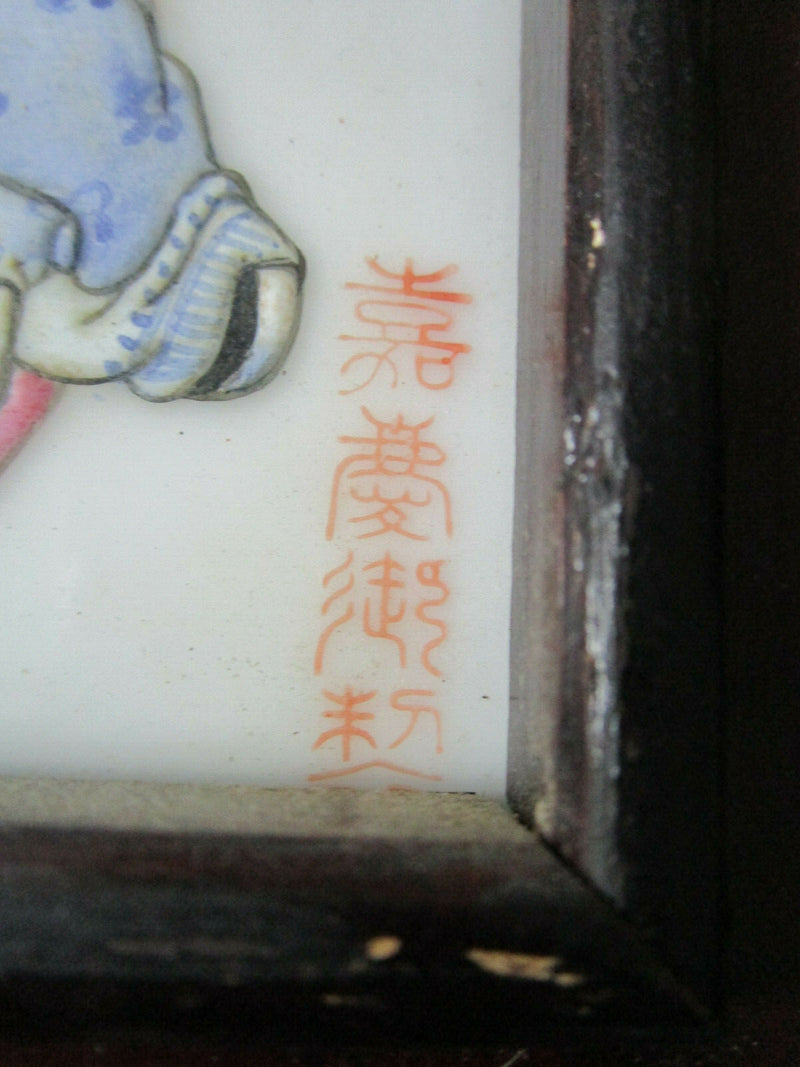 嘉慶御製